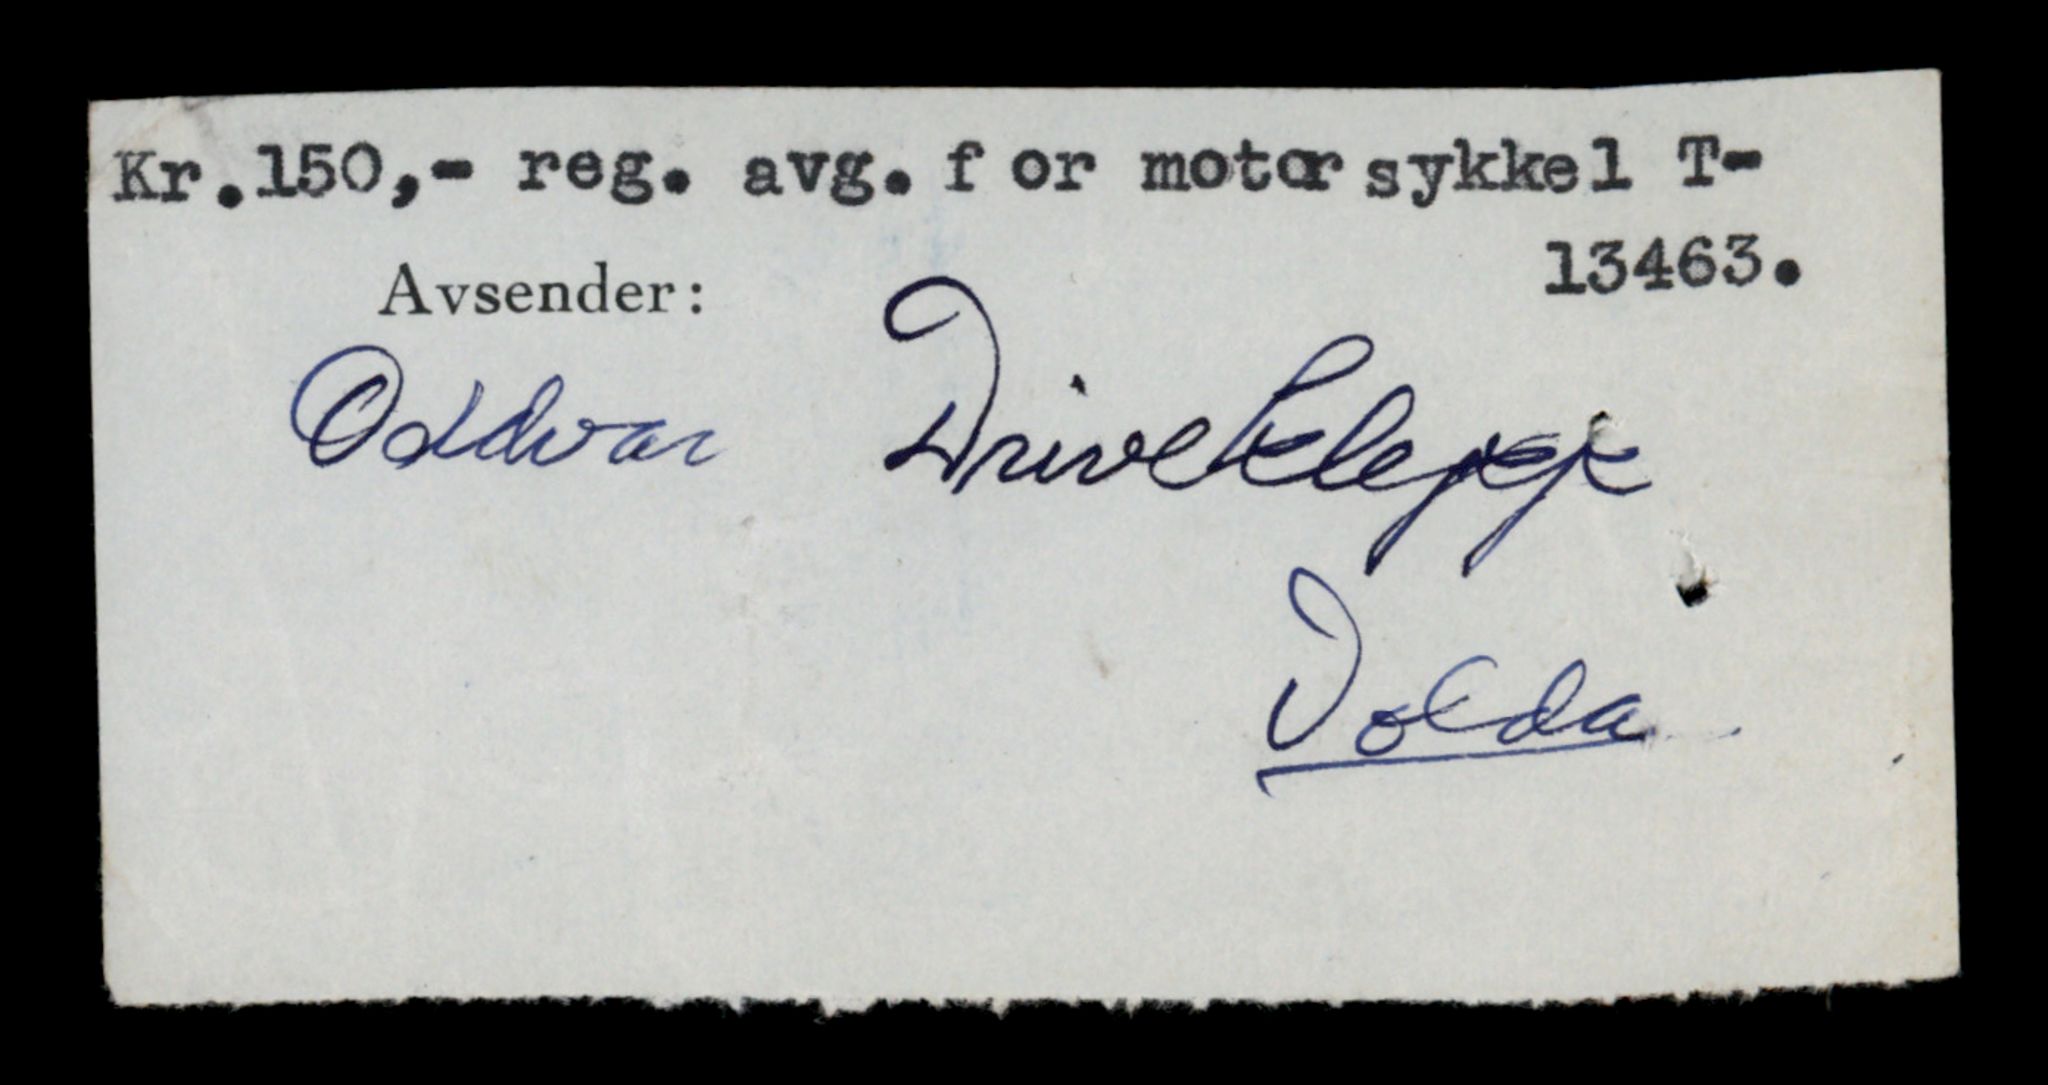 Kr.150,- reg. avg. for motorsykkel T-
13463.
Avsender:
Oddvar Driveklepp
Volda